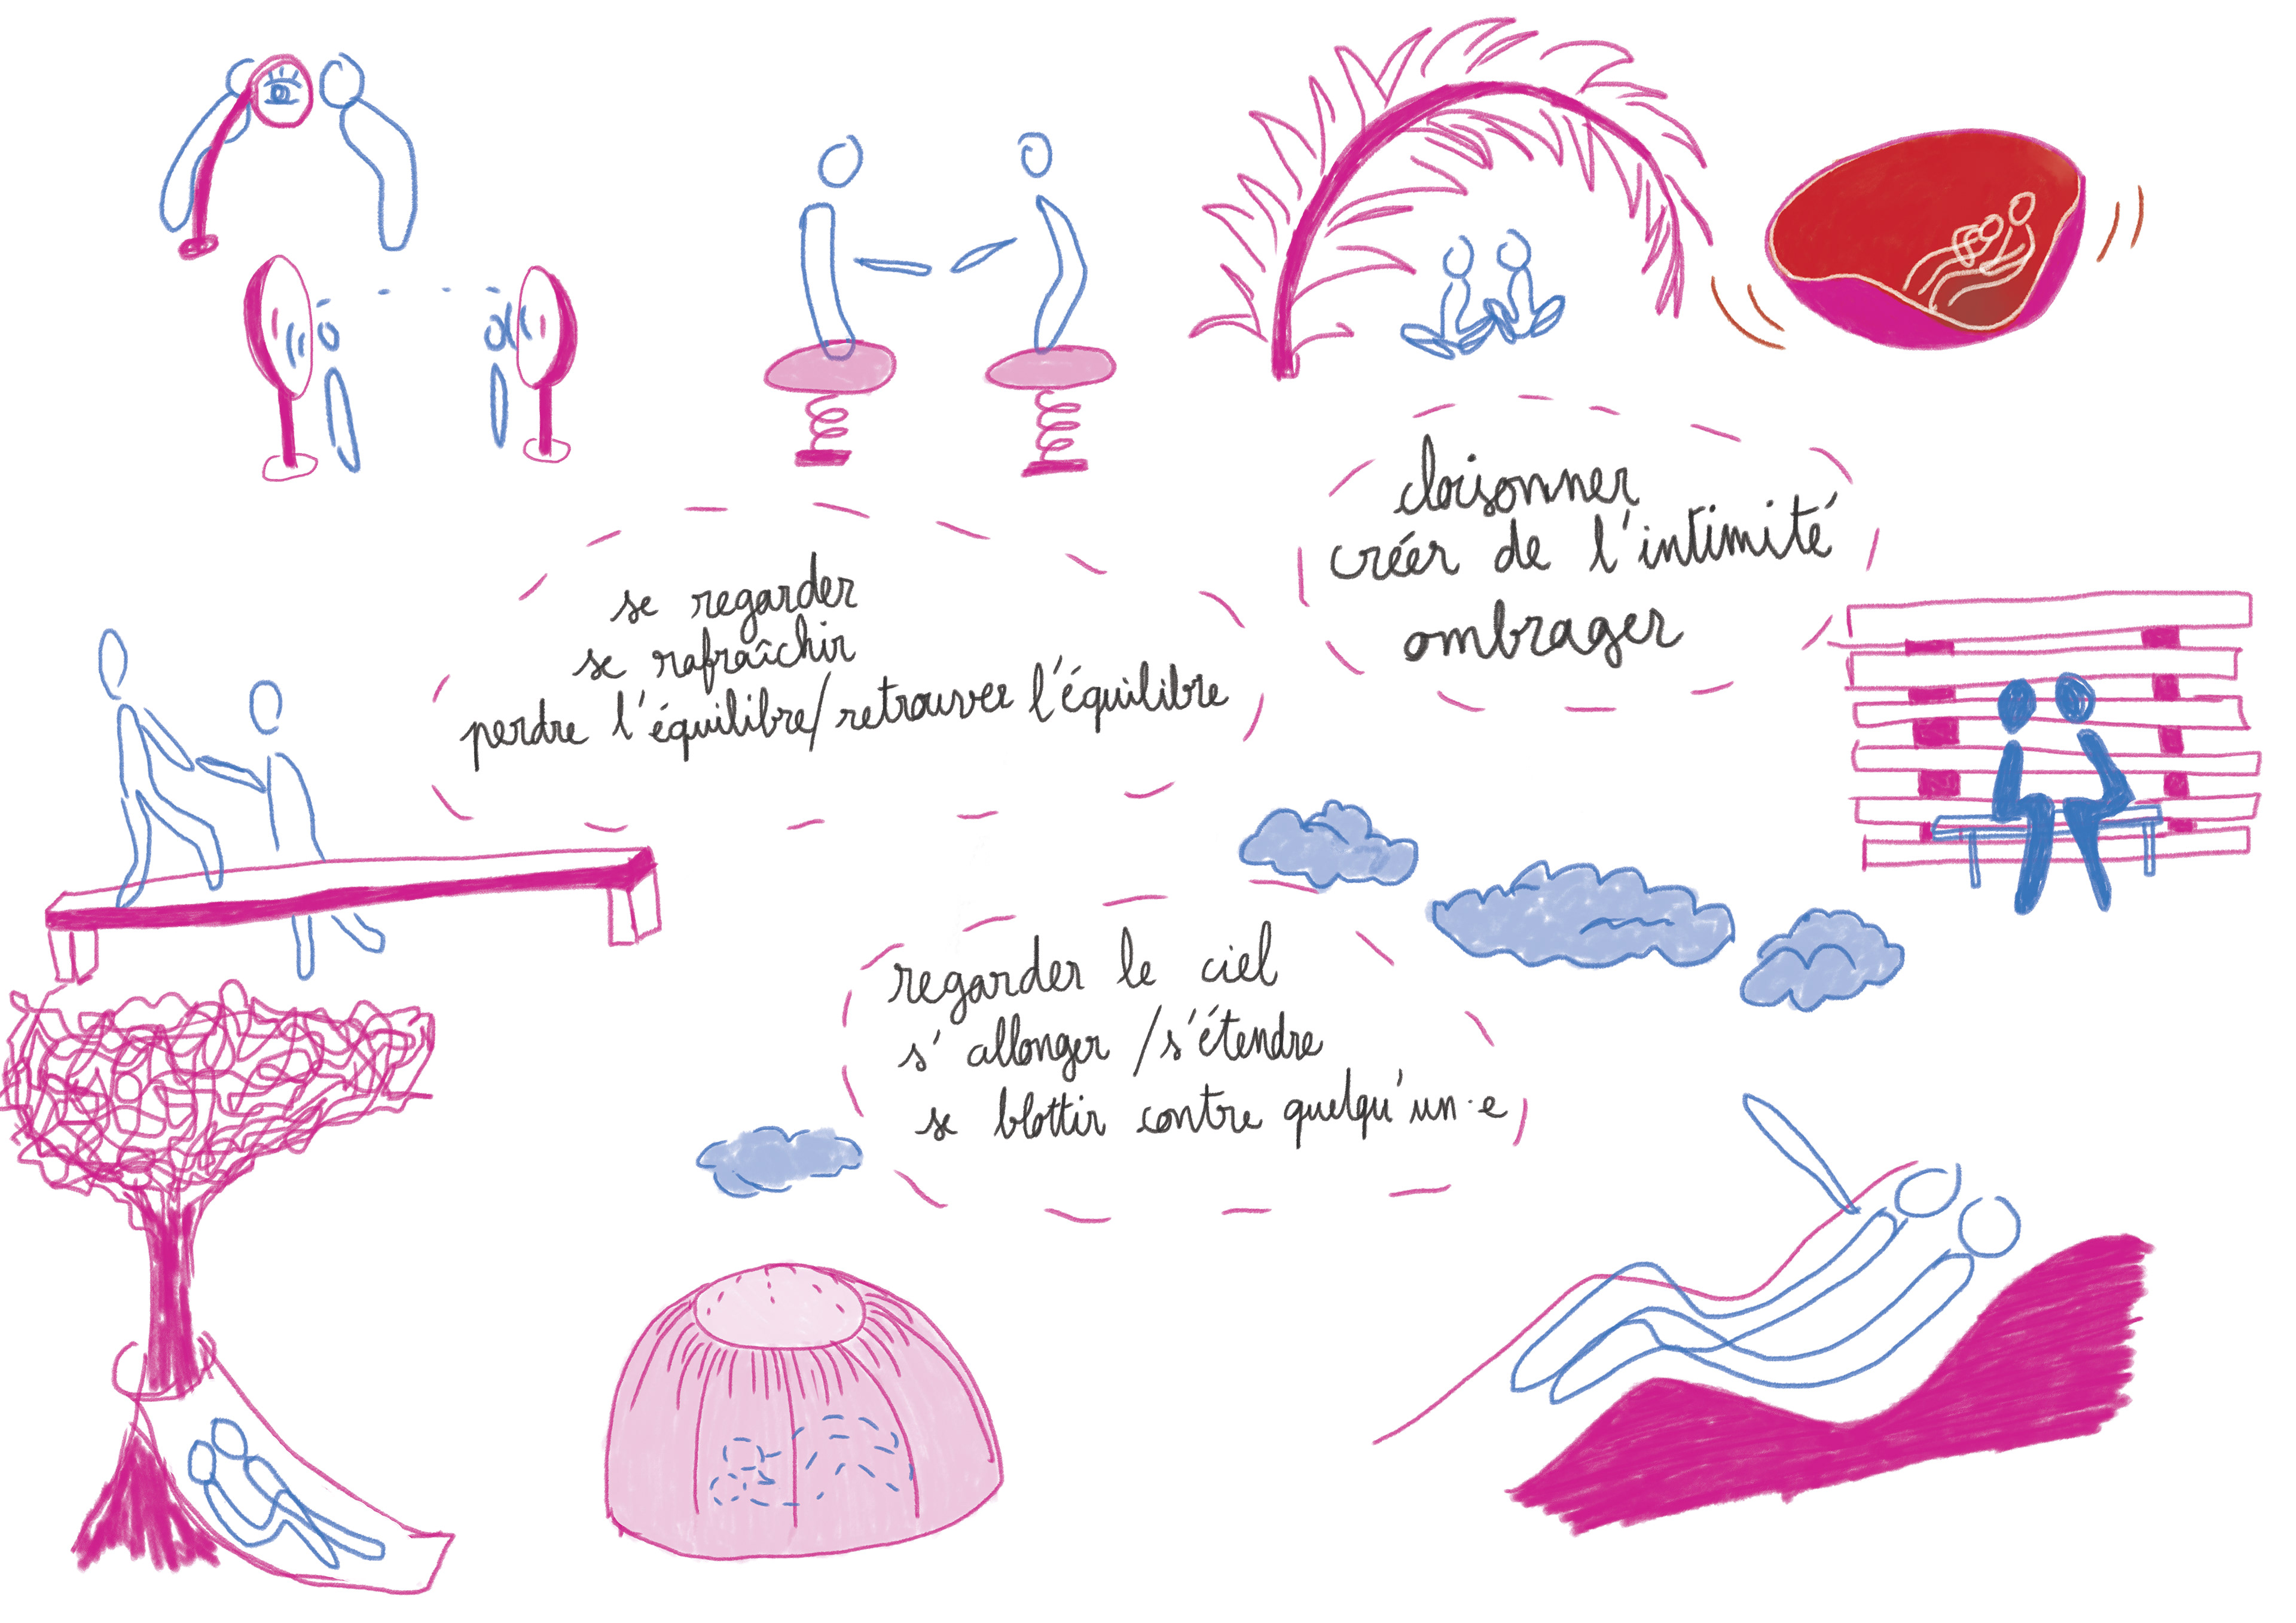 cloisonner
créer de l'intimité
ombrager
se regarder
se rafraîchir
perdre l'équilibre/retrouver l'équilibre
regarder le ciel
s'allonger/s'étendre
se blottir contre quelqu'un·e